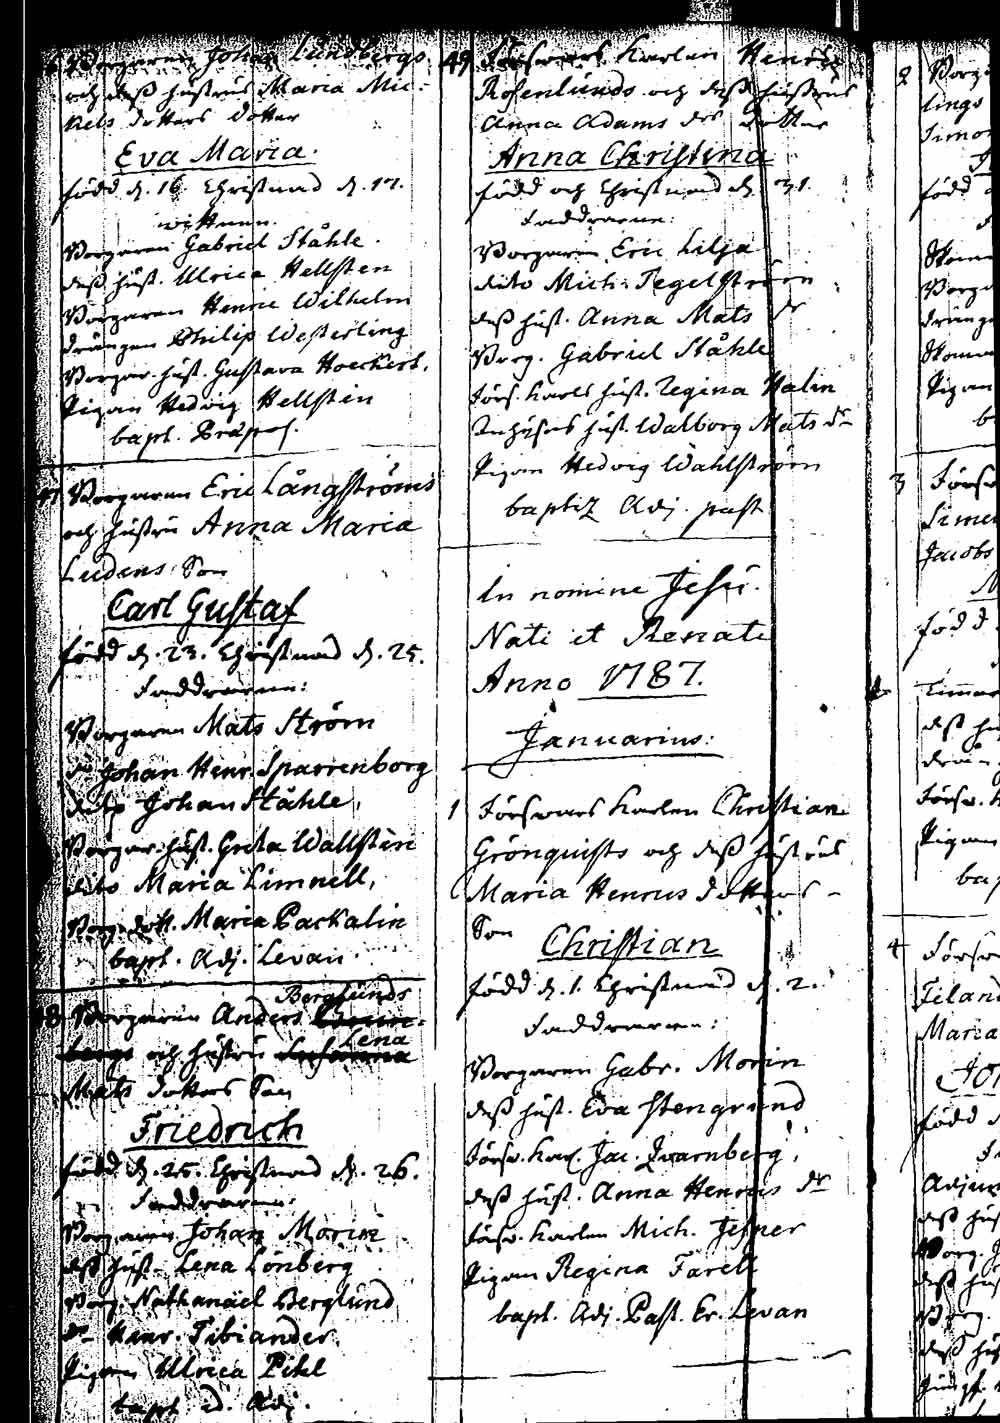 Borgaren Johan Lundbergs
och dess hustrus Maria Mic-
kels dotters dotter
Eva Maria.
född d. 16. Christnad d. 17.
wittnen.
Borgaren Gabriel Ståhle.
dess hust. Ulrica Hellsten
Borgaren Henric Wilhelm
drängen Philip Westerling
Borgar. hust. Gustava Hoeckert.
Pigan Hedvig Hellstin
bapt. Præpos.
47 Borgaren Eric Långströms
och hustru Anna Maria
Ludens Son
Carl Gustaf
född d. 23. Christnad d. 25.
Faddrarne:
Borgaren Mats Ström
do Johan Henr. Sparrenborg
dito Johan Ståhle,
Borgar. hust. Greta Wallstin
dito Maria Limnell,
Borg. dott. Maria Packalin
bapt. Adj. Levan.
48 Borgaren Anders Berglunds
och hustru Lena
Mats dotters Son
Friedrich
född d. 25. Christnad d. 26.
Faddrarne:
Borgaren Johan Morin
dess hust. Lena Lönberg
Borg. Nathanaël Berglund
do Henr. Tibiander
Pigan Ulrica Pihl
bapt. id. Adj.
49 Försvars Karlen Henric
Rosenlunds och dess hustrus
Anna Adams drs dotter
Anna Christina
född och Christnad d. 31.
Faddrarne:
Borgaren Eric Lilja
dito Mich. Tegelström
dess hust. Anna Mats dr
Borg. Gabriel Ståhle
Förs. Karls hust. Regina Halin
Inhyses hust. Walborg Mats dr
Pigan Hedvig Wahlström
baptiz Adj. past
In nomine Jesu.
Nati et Renati
Anno 1787.
Januarius:
1 Försvars Karlen Christian
Grönquists och dess hustrus
Maria Henrics dotters
Son
Christian
född d. 1. Christnad d. 2.
Faddrarne:
Borgaren Gabr. Morin
dess hust. Eva Stengrund
Försv. Karl. Jac. Qvarnberg,
dess hust. Anna Henrics dr
Försv. Karlen Mich. Jesper
Pigan Regina Farell
bapt. Adj. Past. Er. Levan
2 Borg
lings
Simo
född
Borg
dränge
Pigan
3 Försv
Simo
Jacobs
född
4 Försv
Maria
född
Adjun
dess hus
Borg.
dess hus
dess hus